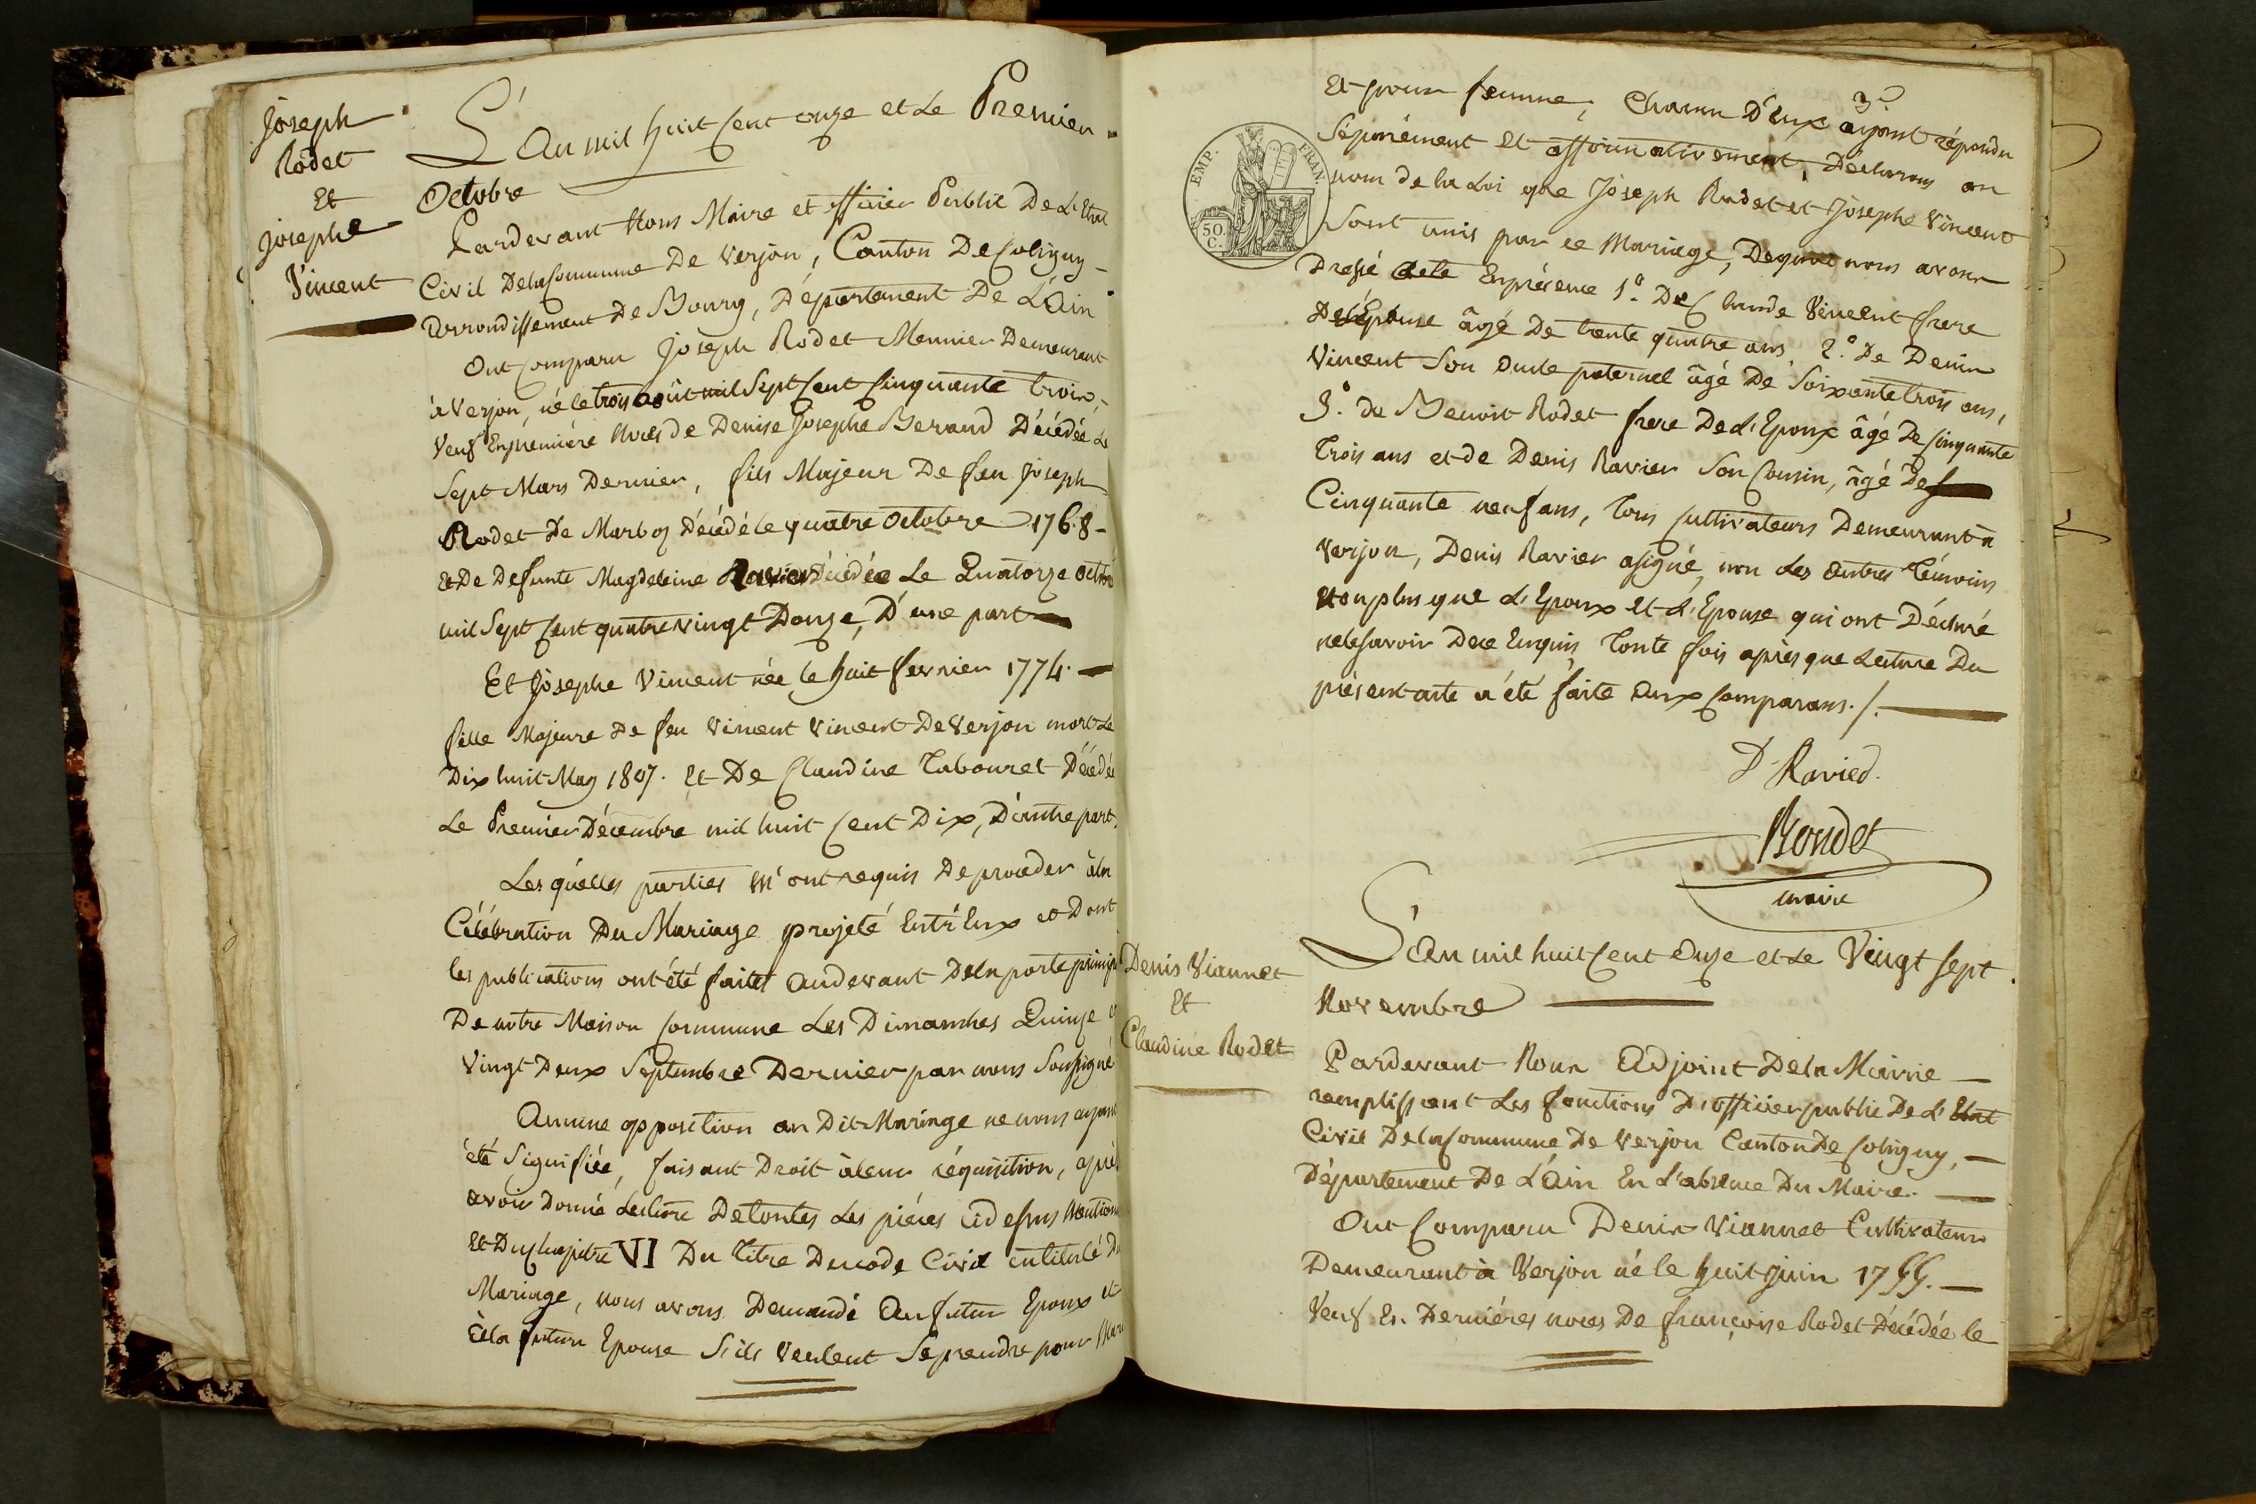 Joseph
Rodet
Et
Josephe
Vincent
L'An mil huit Cent onze et Le Premier
Octobre
Pardevant Nous Maire et officier Public De L'Etat
Civil DelaCommune De Verjon, Canton De Coligny
Arrondissement De Bourg, Département De L'Ain
Ont Comparu Joseph Rodet Meunier Demeurant
à Verjon, né le trois août mil Sept Cent Cinquante trois,
Veuf En premiére Noces de Denise Josephe Beraud Décédée Le
Sept Mars Dernier, fils Majeur De feu Joseph
Rodet De Marboz Décédé le quatre Octobre 1768
Et De Defunte Magdeleine Ravier Décédée Le Quatorze Octbre
mil Sept Cent quatre Vingt Douze, D'une part
Et Josephe Vincent née le huit fevrier 1774.
fille Majeure De feu Vincent Vincent De Verjon mort Le
Dix huit May 1807. Et De Claudine Tabouret Décédée
Le Premier Décembre mil huit Cent Dix, D'autre part.
Les quelles parties M'ont requis De proceder àla
Célébration Du Mariage projeté Entr'Eux et Dont
les publications ont été faites audevant Dela porte princip
De notre Maison Commune Les Dimanches Quinze
Vingt Deux Septembre Dernier par nous Soussigné
Aucune opposition au Dit Mariage ne nous ayant
été Signifiée, faisant Droit àleur réquisition, après
avoir Donné Lecture De toutes Les piéces cidessus Mention
Et Du Chapitre VI Du Titre Du code Civil intitulé Du
Mariage, nous avons Demandé Au futur Epoux et
à la future Epouse S'ils Veulent Se prendre pour Mari
3e
Et pour femme, Chacun D'Eux ayant répondu
Séparément et affirmativement, Déclarons au
nom de la Loi que Joseph Rodet et Josephe Vincent
Sont unis par Le Mariage, Dequoi nous avons
Dressé Acte En présence 1.° De Claude Vincent frere
De L'Epouse âgé De trente quatre ans. 2.° De Denis
Vincent Son Oncle paternel âgé De Soixante trois ans,
3.° du Benoit Rodet frere De L'Epoux âgé De Cinquante
Trois ans et de Denis Ravier Son Cousin, âgé De
Cinquante neuf ans, Tous Cultivateurs Demeurant à
Verjon, Denis Ravier a signé non Les autres Témoins
Non plus que L'Epoux Et L'Epouse qui ont Déclaré
ne le Savoir De ce Enquis, Toute fois après que Lecture Du
présent acte a été faite aux Comparans./.
D. Ravied.
Bondet
maire
Denis Viannet
Et
Claudine Rodet
L'An mil huit Cent Onze et Le Vingt Sept
Novembre
Pardevant Nous Adjoint De la Mairie
remplissant Les fonctions D'officier public De L'Etat
Civil DelaCommune De Verjon Canton De Coligny,
Département De L'Ain En L'absence Du Maire.
Ont Comparu Denis Viannet Cultivateur
Demeurant à Verjon né le huit Juin 1755.
Veuf En Derniéres noces De françoise Rodet Décédée le
EMP. FRAN.
50.
C.